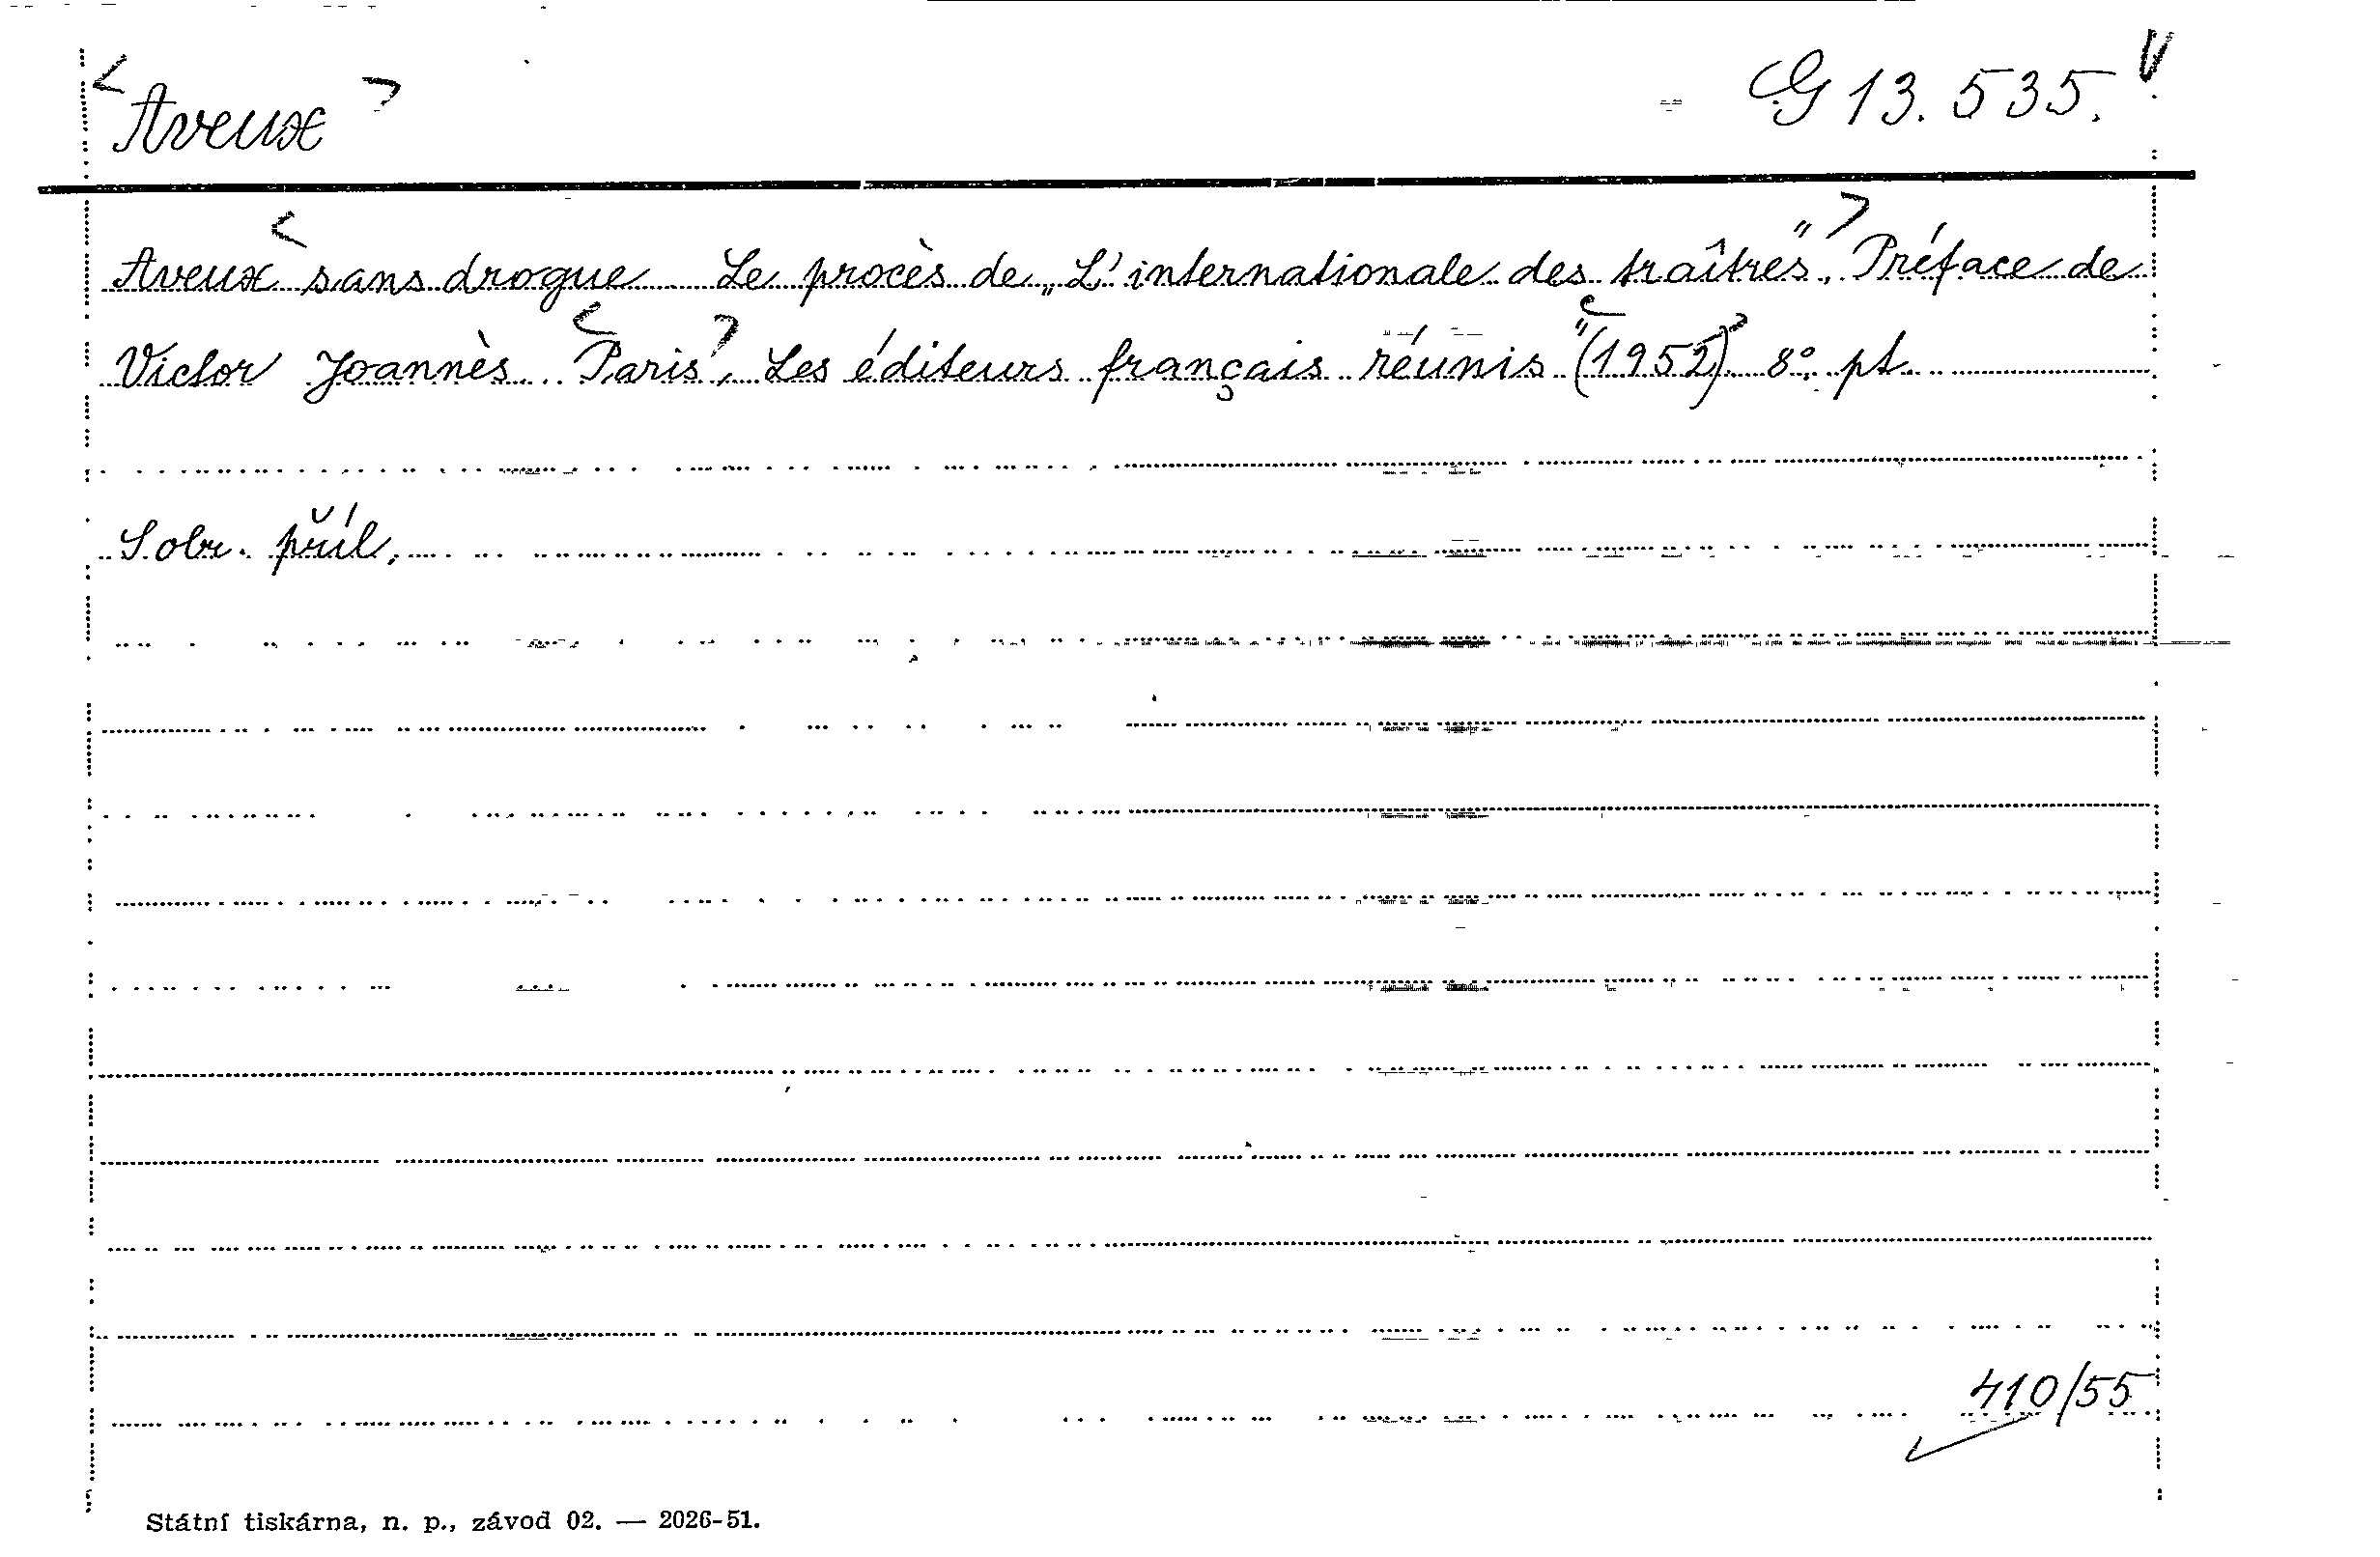 <Aveux>
G 13.535.
Aveux < sans drogue. Le procès de „L'internationale des traîtres“.> Préface de
Victor Joannès. <Paris>, Les éditeurs français réunis "<(1952)>. 8°. pt.
S obr. příl.
410/55
Státní tiskárna, n. p., závod 02. — 2026-51.